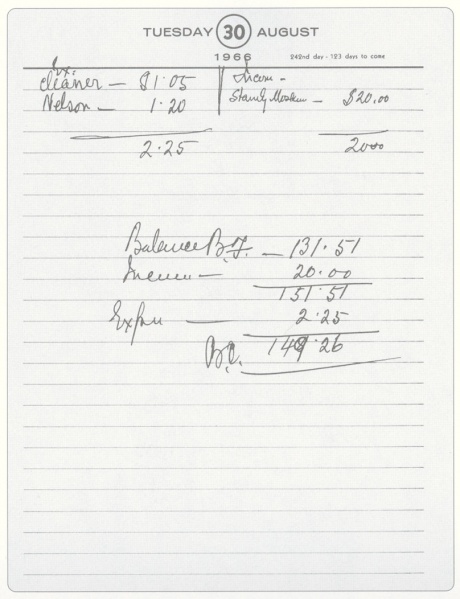 TUESDAY 30 AUGUST
1966
242nd day - 123 days to come
Ex:
cleaner — $1.05
Nelson — 1.20
2.25
Income -
Stanly Moslem — $20.00
2000
Balance B.F. — 131.51
Income — 20.00
151.51
Expen — 2.25
B.C. 149.26